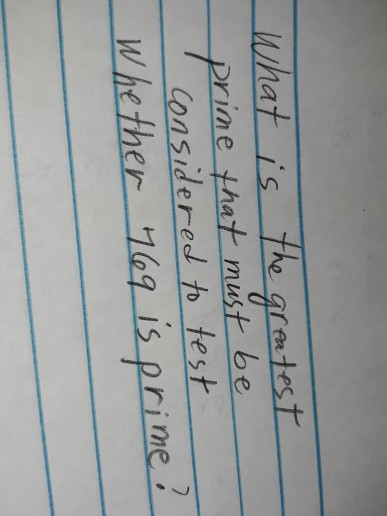 What is the greatest
prime that must be
considered to test
whether 769 is prime?